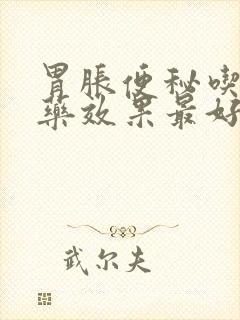 胃脹便秘喫
藥效果最好
武尔夫